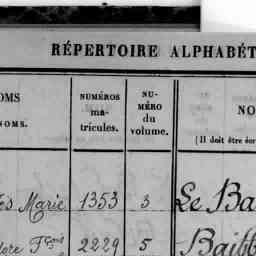 RÉPERTOIRE ALPHABÉT
OMS
NOMS.
NUMÉROS
ma-
tricules.
NU-
MÉRO
du
volume.
NO
(Il doit être écr
es Marie 1353 3 Le Ba
dore Fçois 2229 5 Baitt